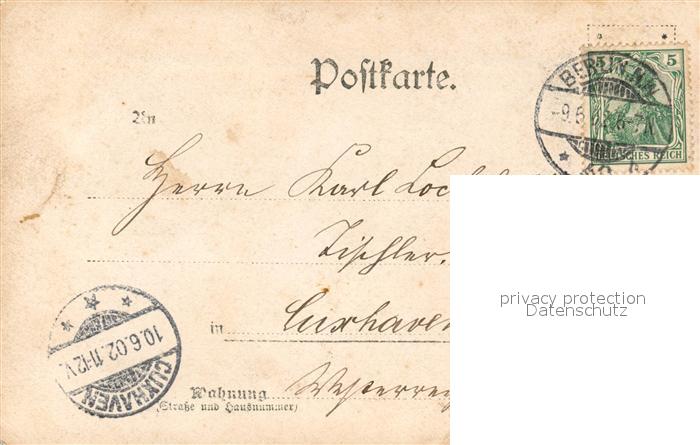 Postkarte.
5
BERLIN N.W.
-9.6.
DEUTSCHES REICH
An
Herrn Karl
Tischler.
privacy protection
Datenschutz
in Cuxhaven
10.6.02.11-12V.
CUXHAVEN
Wohnung
(Straße und Hausnummer)